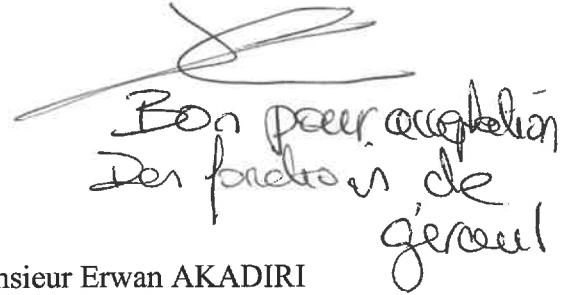 Bon pour acceptation
Des fonctions de
gérant
nsieur Erwan AKADIRI